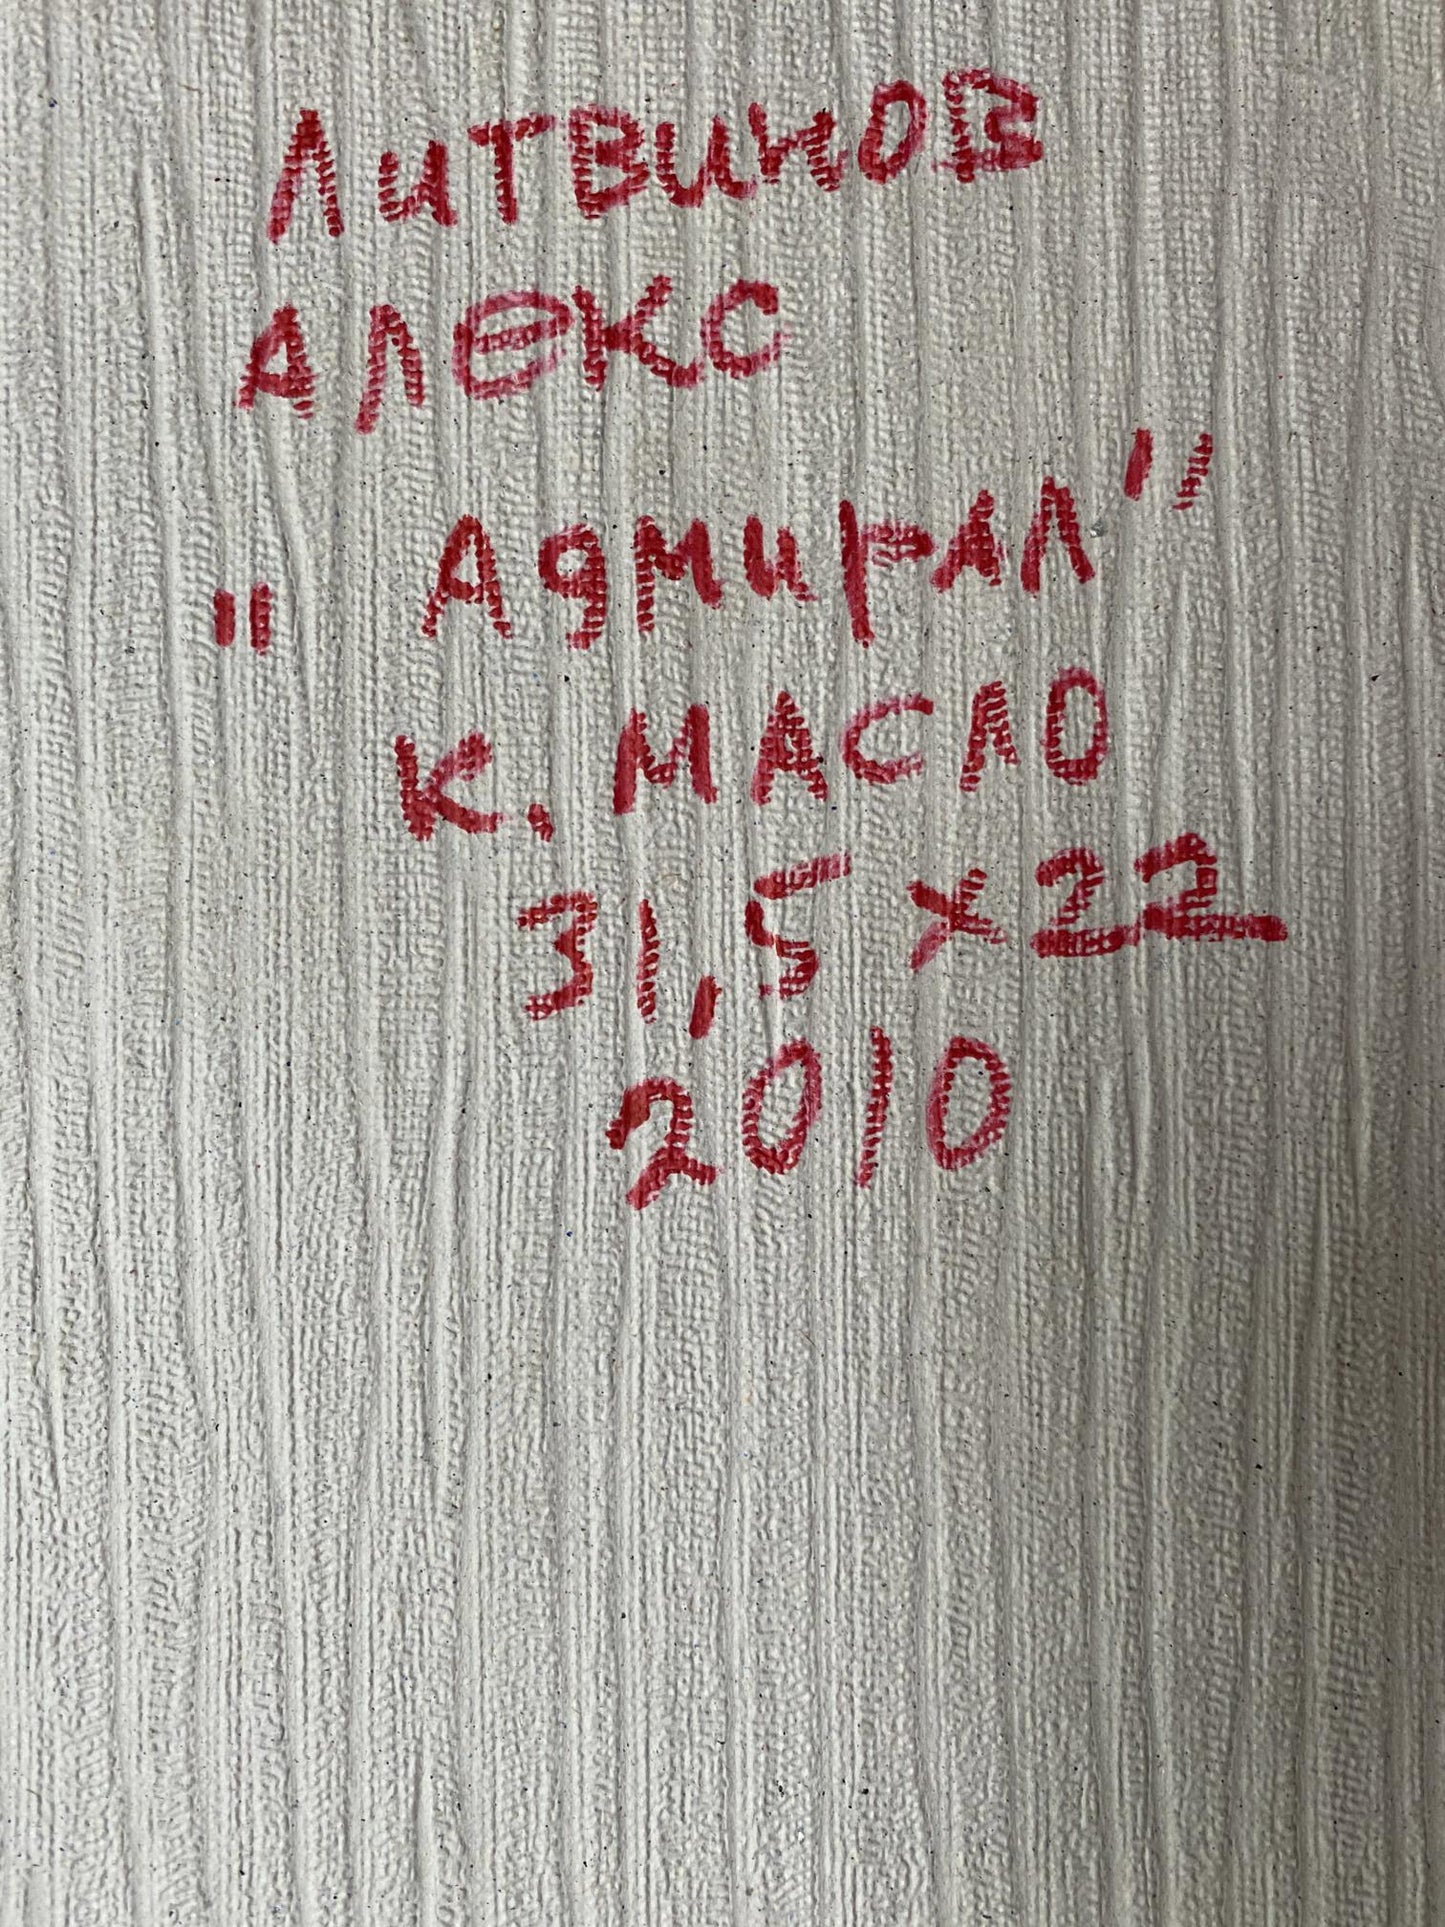 Литвинов
Алекс
"Адмирал"
К. Масло
31,5 x 22
2010